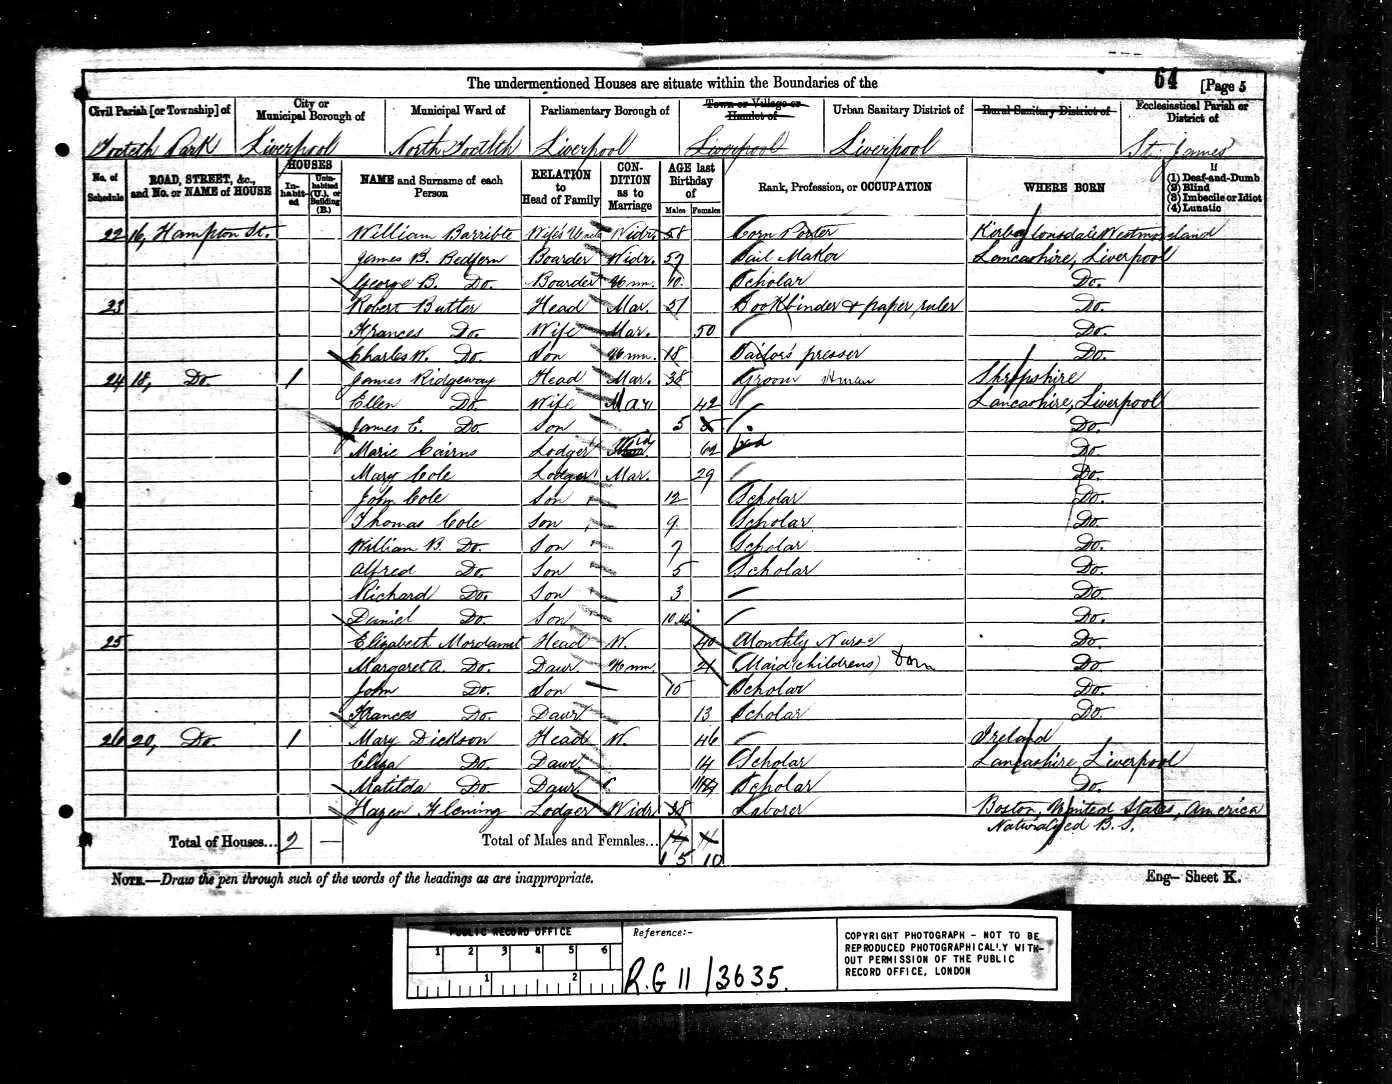 The undermentioned Houses are situate within the Boundaries of the
64 [Page 5
Civil Parish [or Township] of
City or Municipal Borough of
Municipal Ward of
Parliamentary Borough of
Town or Village or Hamlet of
Urban Sanitary District of
Rural Sanitary District of
Ecclesiastical Parish or District of
Toxteth Park Liverpool North Toxteth Liverpool Liverpool Liverpool St. James
No. of Schedule
ROAD, STREET, &c., and No. or NAME of HOUSE
HOUSES
In-habit-ed
Unin-habited (U.), or Building (B.)
NAME and Surname of each Person
RELATION to Head of Family
CON-DITION as to Marriage
AGE last Birthday of
Males Females
Rank, Profession, or OCCUPATION
WHERE BORN
If
(1) Deaf-and-Dumb
(2) Blind
(3) Imbecile or Idiot
(4) Lunatic
22 16, Hampton St. William Barribte Wife's Uncle Widr. 58 Corn Porter Westmoreland
James B. Redfern Boarder Widr. Sail Maker Lancashire, Liverpool
George B. Do. Boarder Unm. 10 Scholar Do.
23 Robert Butter Head Mar. 51 Bookbinder & paper ruler Do.
Frances Do. Wife Mar. 50 Do.
Charles W. Do. Son Unm. 18 Tailor's presser Do.
24 18, Do. 1 James Ridgeway Head Mar. 38 Groom Shropshire
Ellen Do. Wife Mar 42 Lancashire, Liverpool
James E. Do. Son 5 Do.
Marie Cairns Lodger Wid 62 Do
Mary Cole Lodger Mar. 29 Do.
John Cole Son 12 Scholar Do.
Thomas Cole Son 9 Scholar Do.
William B. Do. Son 7 Scholar Do.
Alfred Do. Son 5 Scholar Do.
Richard Do. Son 3 — Do.
Daniel Do. Son 10 Do.
25 Elizabeth Mordaunt Head W. 40 Monthly Nurse Do.
Margaret A. Do. Daur. Unm. 21 Maid (childrens) Dom Do
John Do. Son — 10 Scholar Do.
Frances Do. Daur 13 Scholar Do.
26 20, Do. 1 Mary Dickson Head W. 46 Ireland
Eliza Do. Daur. 14 Scholar Lancashire, Liverpool
Matilda Do. Daur. Scholar Do.
Hazen Fleming Lodger Widr. 38 Laborer Boston, United States, America
Naturalized B. S.
Total of Houses... 2 —
Total of Males and Females... 14 11
15 10
NOTE.—Draw the pen through such of the words of the headings as are inappropriate.
Eng— Sheet K.
PUBLIC RECORD OFFICE
1 2 3 4 5 6
1 2
Reference:-
R.G 11 / 3635.
COPYRIGHT PHOTOGRAPH - NOT TO BE
REPRODUCED PHOTOGRAPHICALLY WITH-
OUT PERMISSION OF THE PUBLIC
RECORD OFFICE, LONDON